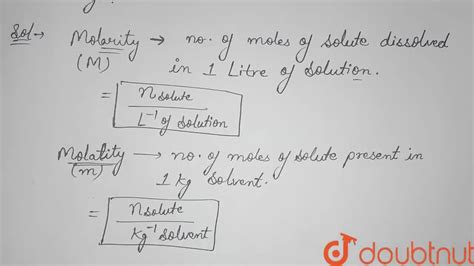 Sol→ Molarity → no. of moles of solute dissolved
(M) in 1 Litre of solution.
= n solute
L⁻¹ of solution
Molality → no. of moles of solute present in
(m) 1 kg solvent.
= n solute
kg⁻¹ solvent
doubtnut